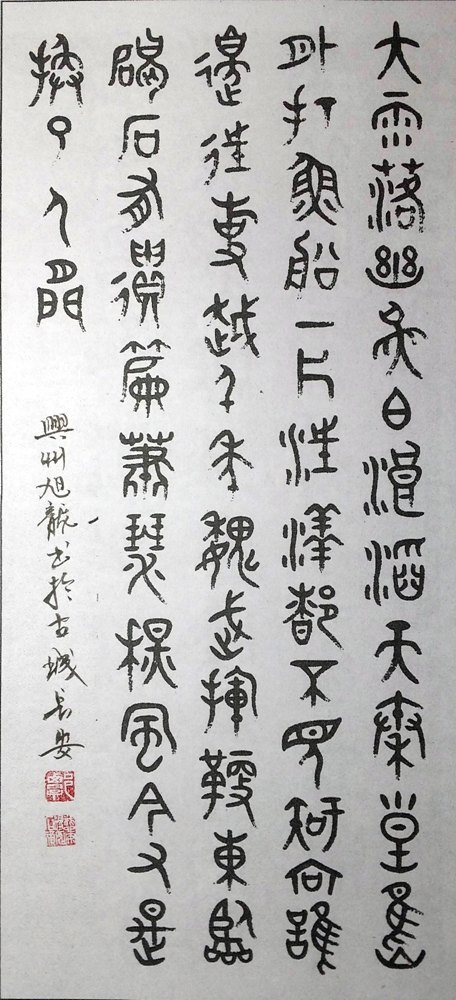 大雨落幽燕白浪滔天秦皇島
外打魚船一片汪洋都不見知向誰
邊往事越千年魏武揮鞭東臨
碣石有遺篇蕭瑟秋風今又是
換了人間
興州旭龍书於古城長安